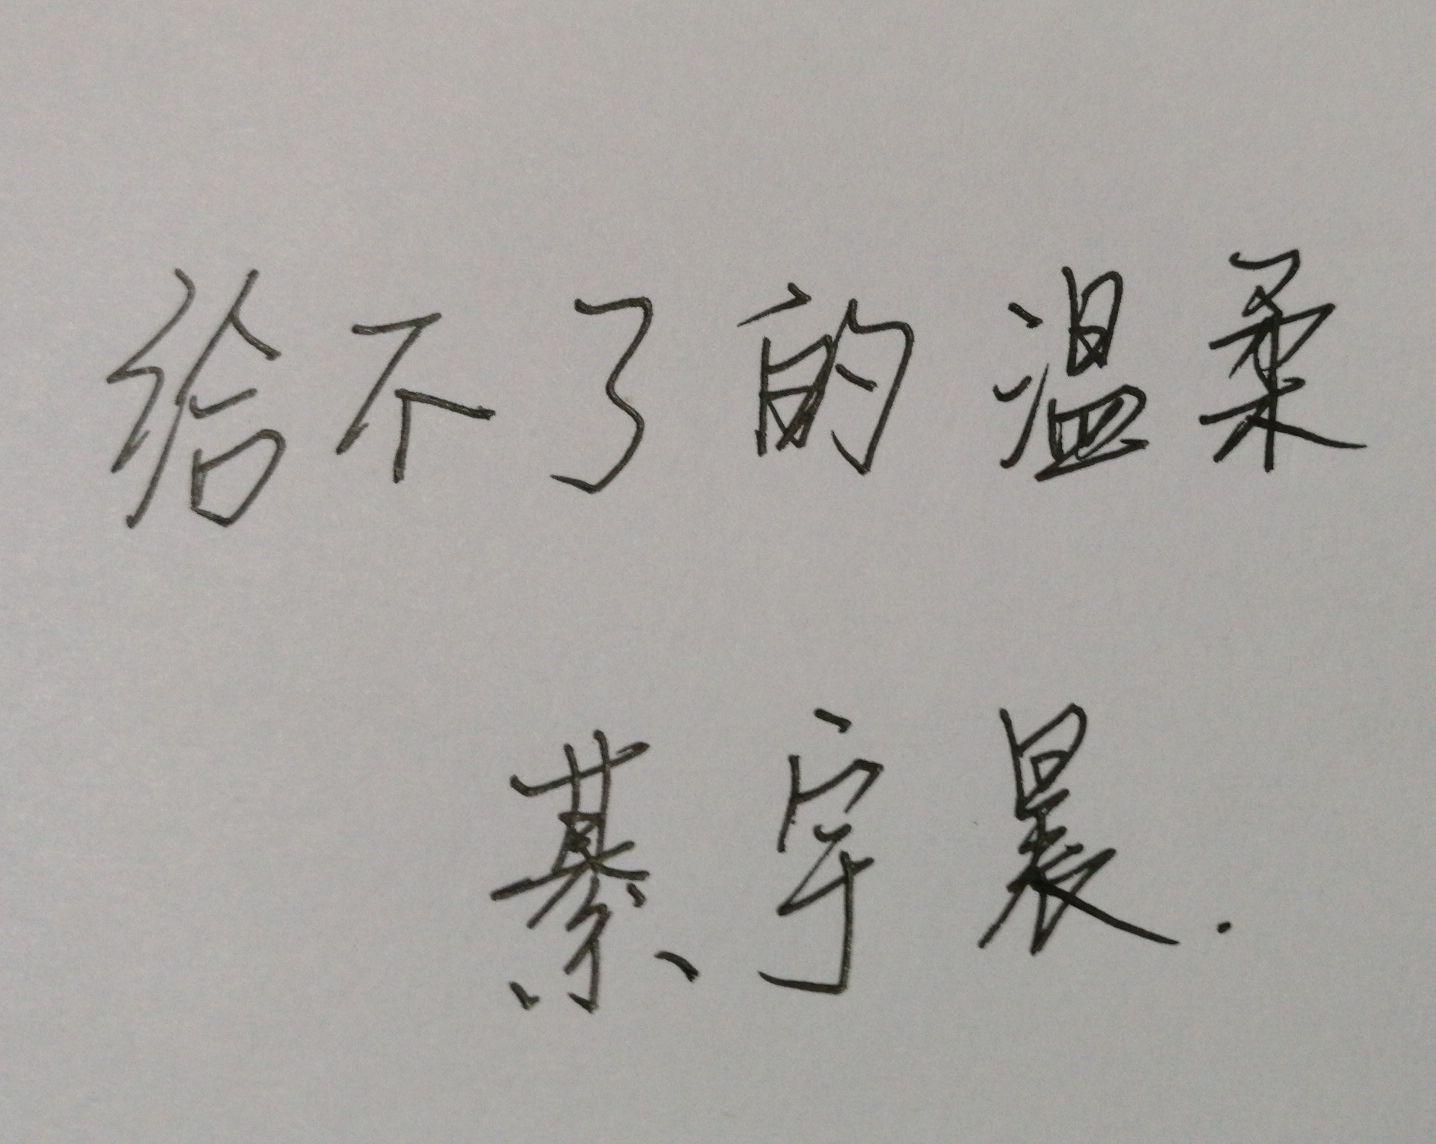 给不了的温柔
綦宇晨.